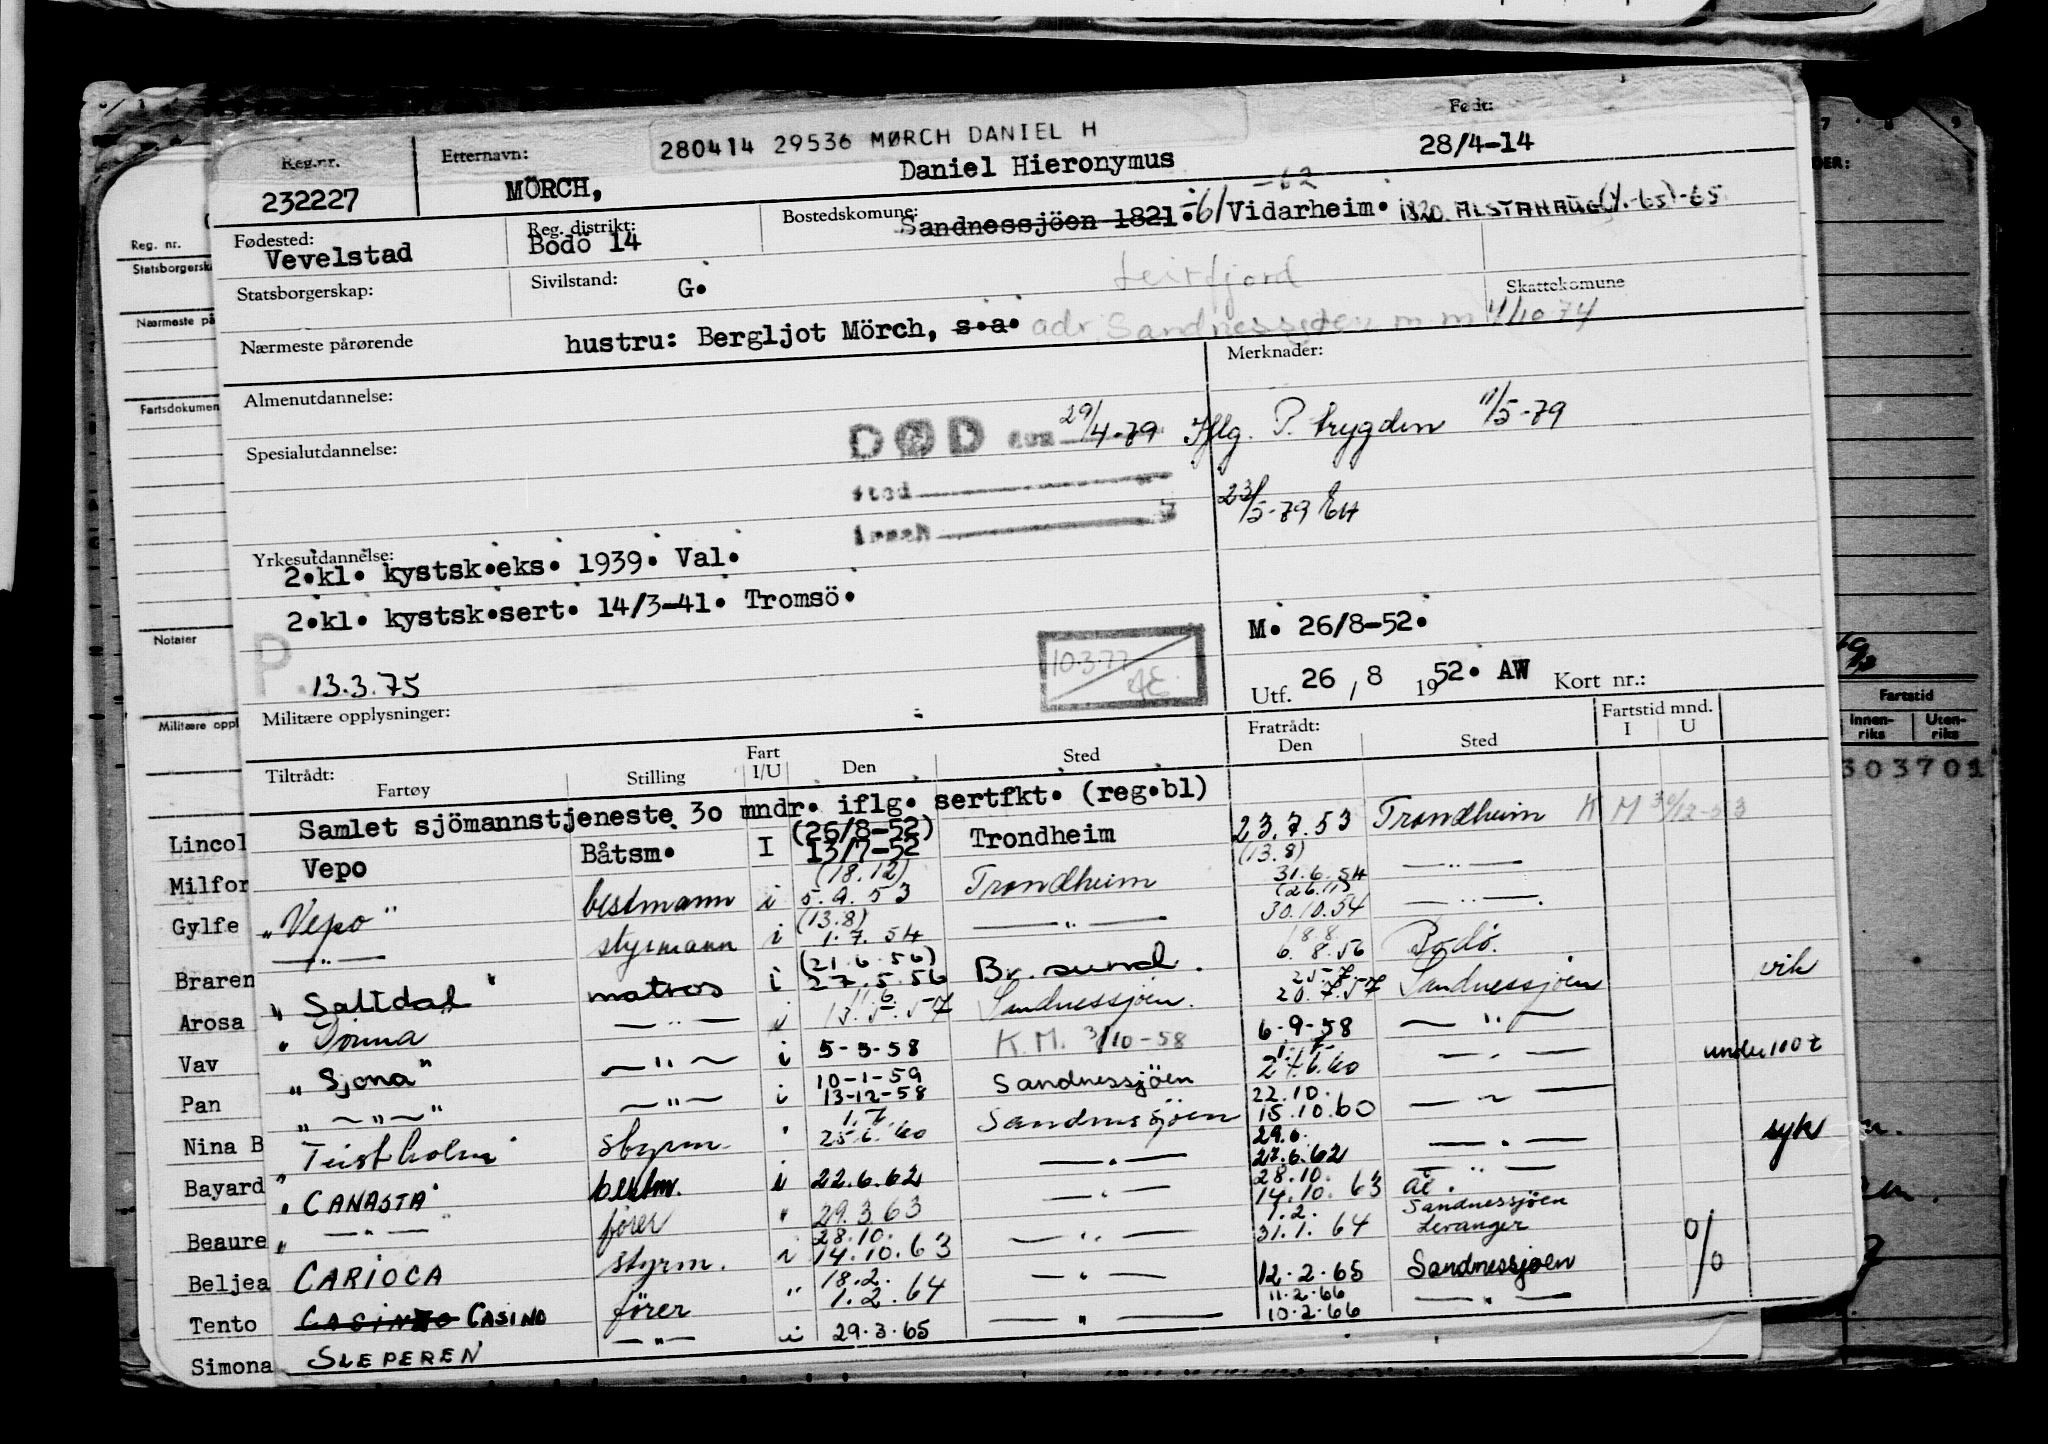 280414 29536 MØRCH DANIEL H
Reg.nr. Etternavn: Født:
232227 MÖRCH, Daniel Hieronymus 28/4-14
-62
Fødested: Reg. distrikt: Bostedskommune:
Vevelstad Bodö 14 Sandnessjöen 1821. -61 Vidarheim. 1820 ALSTAHAUG (1/1-65)-65
Leirfjord
Statsborgerskap: Sivilstand: G. Skattekomune
Nærmeste pårørende hustru: Bergljot Mörch, s.a. adr. Sandnessjøen m m 11/10 74
Almenutdannelse: Merknader:
DØD den 29/4-79 Iflg. P. trygden 11/5-79
Spesialutdannelse:
sted
innch
23/5-79 EH
Yrkesutdannelse:
2.kl. kystsk.eks. 1939. Val.
2.kl. kystsk.sert. 14/3-41. Tromsö.
M. 26/8-52.
P. 13.3.75
10.3.77
Utf. 26 / 8 1952. AW Kort nr.:
Militære opplysninger:
Tiltrådt: Fratrådt: Fartstid mnd.
Fartøy Stilling Fart I/U Den Sted Den Sted I U
Samlet sjömannstjeneste 3o mndr. iflg. sertfkt. (reg.bl)
Vepo Båtsm. I (26/8-52) 13/7-52 Trondheim 23.7.53 Trondheim K M 30/12-53
"Vepo" bestmann i (18.12) 5.9.53 Trondheim (13.8) 31.6.54 — " —
— " — styrmann i (13.8) 1.7.54 — " — (26.11) 30.10.54 — " —.
"Saltdal" matros i (21.6.56) 27.5.56 Br.sund. 18.8. 6.8.56 Bodö.
"Dönna — " — i 11.6. 13.5.57 Sandnessjöen. 25.7. 20.7.57 Sandnessjöen vik
"Sjona" — " — i 5-5-58 K.M. 3/10-58 6-9-58 — " —
" — " — " — " — i 10-1-59 13-12-58 Sandnessjöen 1.7. 24.6.60 — " — under 100 t
"Teistholm" styrm. " 1.7. 25.6.60 Sandnessjöen 22.10. 15.10.60 — " —
"CANASTA" bestm. i 22.6.62 — " — 29.6. 27.6.62 — " — syk
" — " — fører " 29.3.63 — " — 28.10. 14.10.63 — " —
CARIOCA styrm. i 28.10. 14.10.63 — " — 1.2. 31.1.64 Sandnessjöen Levanger
CASINO CASINO fører " 18.2. 1.2.64 — " — 12.2.65 Sandnessjöen %
SLEPEREN — " — i 29.3.65 — " — 11.2.66 10.2.66 — " —
Reg. nr.
Statsborgersk
Nærmeste på
Fartsdokumen
Notater
Militære oppl
Lincol
Milfor
Gylfe
Braren
Arosa
Vav
Pan
Nina B
Bayard
Beaure
Beljea
Tento
Simona
7 8 9
DER:
Fartstid
Innen-riks Uten-riks
303701